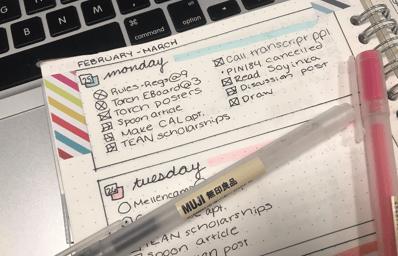 command
option
FEBRUARY - MARCH
25
monday
Rules-Regs@9
Torch EBoard@3
Torch posters
Spoon article
Make CAL apt.
TEAN scholarships
Call transcript ppl
PIN184 cancelled
Read Soyinka
Discussion post
Draw
26
tuesday
MUJI 無印良品
apt.
TEAN scholarships
Spoon article
post